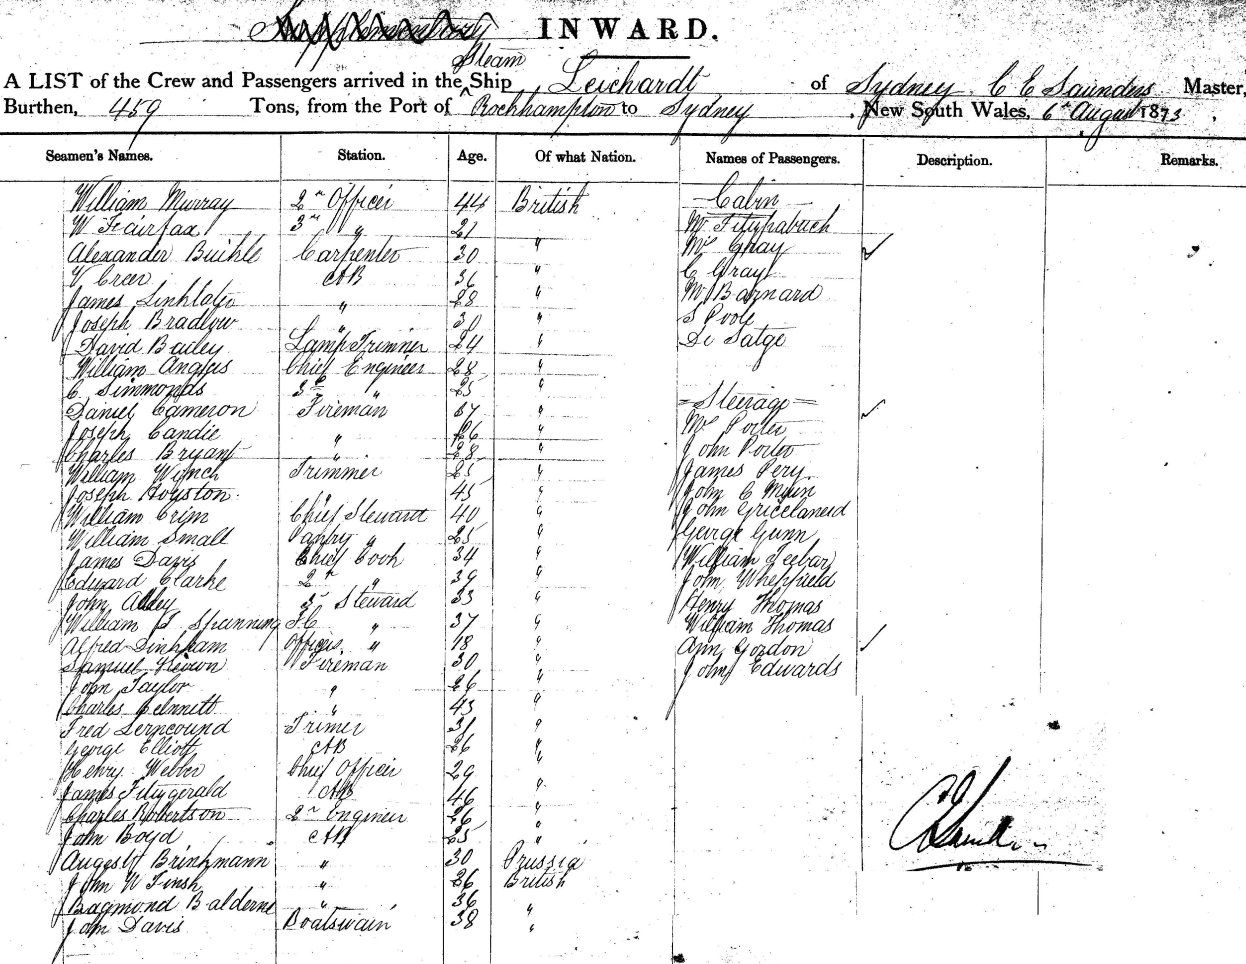 INWARD.
Steam
A LIST of the Crew and Passengers arrived in the ^ Ship Leichardt of Sydney C E Saunders Master,
Burthen, 459 Tons, from the Port of Rockhampton to Sydney, New South Wales, 6th August 1873.
Seamen's Names. Station. Age. Of what Nation. Names of Passengers. Description. Remarks.
William Murray 2nd Officer 44 British — Cabin —
W Fairfax 3rd " 21 Mr Fitzpatrick
Alexander Buikle Carpenter 30 " Mrs Gray ✓
Creer AB 36 " C Gray
James Linklater " 28 " Mr Barnard
Joseph Bradlow " 30 " S Poole
David Bailey Lamp Trimmer 24 " De Satge
William Angus Chief Engineer 28 "
C Simmonds 3rd " 25 " = Steerage =
Daniel Cameron Fireman 37 " ✓
Joseph Candie " 26 " Mrs Porter
Charles Bryant " 28 " John Porter
William Winch Trimmer 25 " James Pery
Joseph Houston " 45 " John C
William Crim Chief Steward 40 " John
William Small Pantry " 25 " George Gunn
James Davis Chief Cook 34 " William
Edward Clarke 2nd " 39 " John Whepfield
John Alley 3rd Steward 33 " Henry Thomas
William J Spanning FC " 37 " William Thomas
Alfred Dinham Officers " 18 " Ann Gordon ✓
Samuel Fireman 30 " John Edwards
John Taylor " 26 "
Charles Bennett " 43 "
Fred Trimer 31 "
George Elliott AB 26 "
Henry Webber Chief Officer 29 "
James Fitzgerald AB 46 "
Charles Robertson 2nd Engineer 26 "
John Boyd AB 25 "
August Brinkmann " 30 Prussia
John W Finsh " 26 British
Balderne " 36 "
John Davis Boatswain 38 "